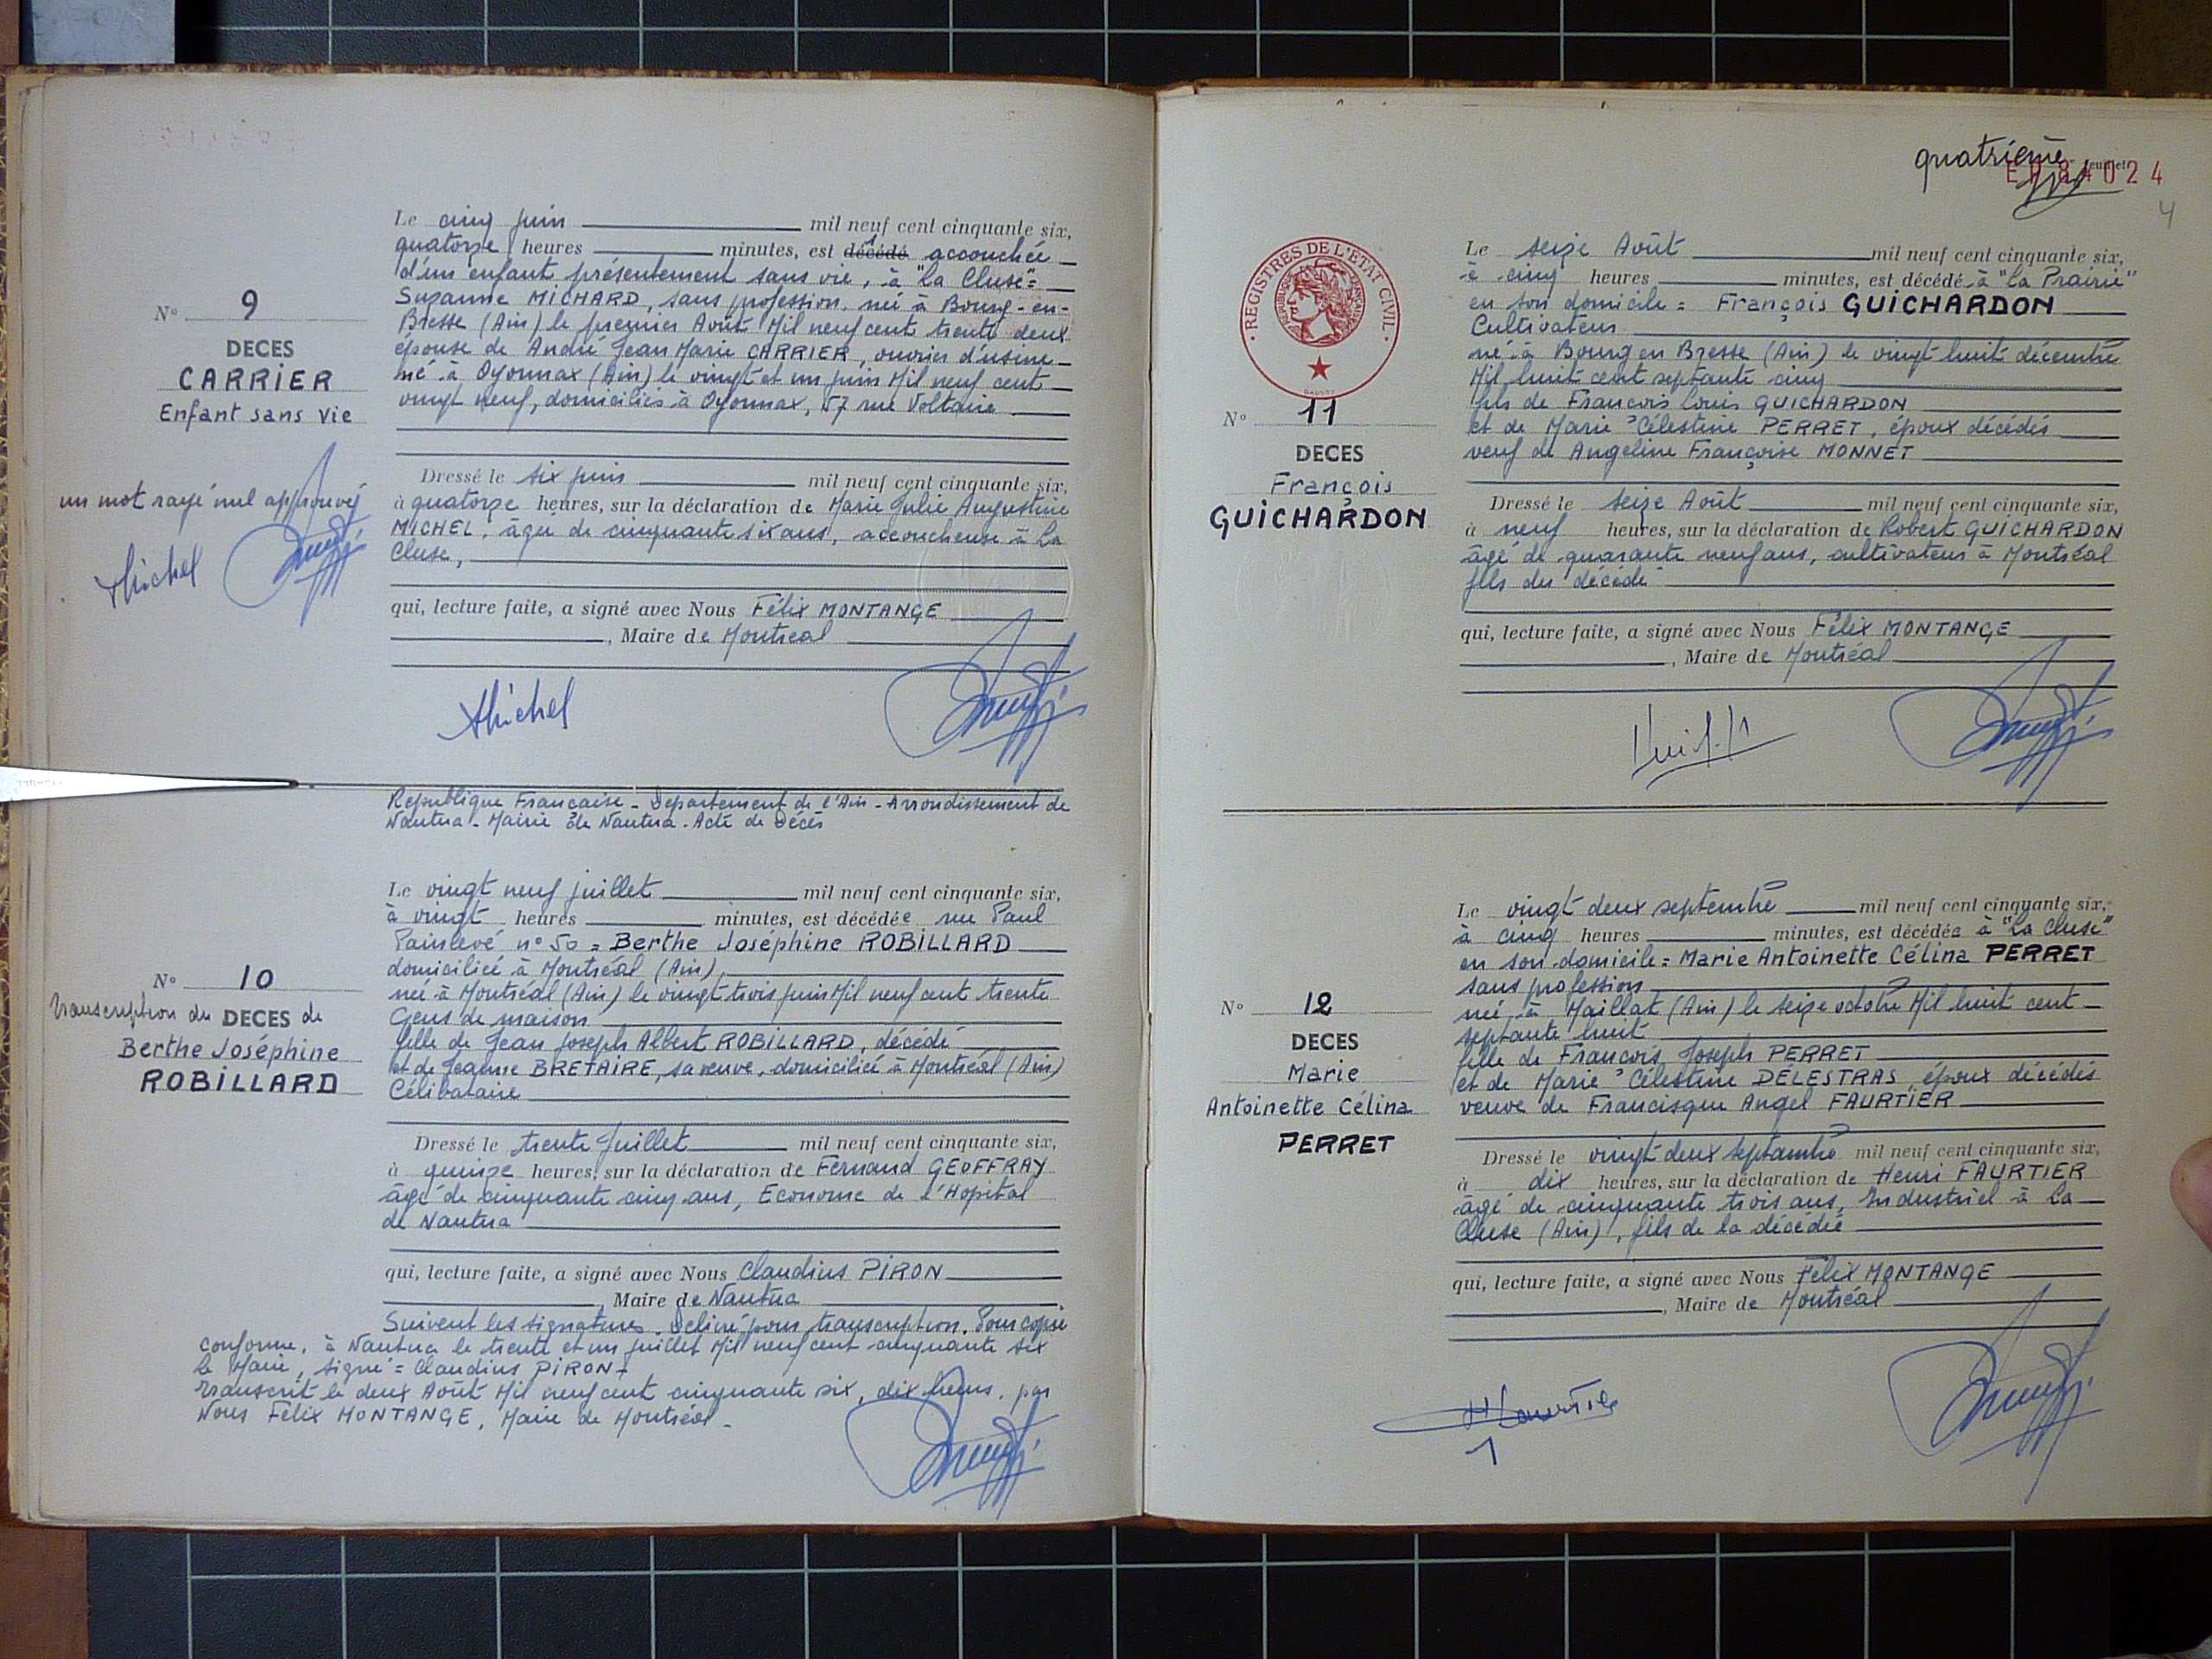 Le cinq juin mil neuf cent cinquante six,
quatorze heures minutes, est décédé accouchée
d'un enfant présentement sans vie, à "La Cluse" =
Suzanne MICHARD, sans profession, née à Bourg-en-
Bresse (Ain) le premier Août Mil neuf cent trente deux
épouse de André Jean Marie CARRIER, ouvrier d'usine
né à Oyonnax (Ain) le vingt et un juin Mil neuf cent
vingt neuf, domiciliés à Oyonnax, 57 rue Voltaire
N° 9
DECES
CARRIER
Enfant sans vie
un mot rayé nul approuvé
Michel
Dressé le six juin mil neuf cent cinquante six,
à quatorze heures, sur la déclaration de Marie Julie Augustine
MICHEL, âgée de cinquante six ans, accoucheuse à La
Cluse,
qui, lecture faite, a signé avec Nous Félix MONTANGE
, Maire de Montréal
Michel
République Française - Département de l'Ain - Arrondissement de
Nantua - Mairie de Nantua - Acte de Décès
Le vingt neuf juillet mil neuf cent cinquante six,
à vingt heures minutes, est décédée rue Paul
Painlevé n° 50 = Berthe Joséphine ROBILLARD
domiciliée à Montréal (Ain),
née à Montréal (Ain) le vingt trois juin Mil neuf cent trente
Gens de maison
fille de Jean Joseph Albert ROBILLARD, décédé
et de Jeanne BRETAIRE, sa veuve, domiciliée à Montréal (Ain)
Célibataire
N° 10
Transcription du DECES de
Berthe Joséphine
ROBILLARD
Dressé le trente Juillet mil neuf cent cinquante six,
à quinze heures, sur la déclaration de Fernand GEOFFRAY
âgé de cinquante cinq ans, Econome de l'Hopital
de Nantua
qui, lecture faite, a signé avec Nous Claudius PIRON
, Maire de Nantua
Suivent les signatures. Délivré pour transcription. Pour copie
conforme, à Nantua le trente et un juillet Mil neuf cent cinquante six
le Maire, signé = Claudius PIRON -
Transcrit le deux Août Mil neuf cent cinquante six, dix heures, par
Nous Félix MONTANGE, Maire de Montréal -
quatrième feuillet
4
REGISTRES DE L'ETAT CIVIL
Le seize Août mil neuf cent cinquante six,
à cinq heures minutes, est décédé à "La Prairie"
en son domicile = François GUICHARDON
Cultivateur
né à Bourg en Bresse (Ain) le vingt huit décembre
Mil huit cent septante cinq
fils de François Louis GUICHARDON
et de Marie Célestine PERRET, époux décédés
veuf de Angeline Françoise MONNET
N° 11
DECES
François
GUICHARDON
Dressé le seize Août mil neuf cent cinquante six,
à neuf heures, sur la déclaration de Robert GUICHARDON
âgé de quarante neuf ans, cultivateur à Montréal
fils du décédé
qui, lecture faite, a signé avec Nous Félix MONTANGE
, Maire de Montréal
Le vingt deux septembre mil neuf cent cinquante six,
à cinq heures minutes, est décédée à "La Cluse"
en son domicile = Marie Antoinette Célina PERRET
sans profession
née à Maillat (Ain) le seize octobre Mil huit cent
septante huit
fille de François Joseph PERRET
et de Marie Célestine DELESTRAS, époux décédés
veuve de Francisque Angel FAURTIER
N° 12
DECES
Marie
Antoinette Célina
PERRET
Dressé le vingt deux septembre mil neuf cent cinquante six,
à dix heures, sur la déclaration de Henri FAURTIER
âgé de cinquante trois ans, Industriel à La
Cluse (Ain), fils de la décédée
qui, lecture faite, a signé avec Nous Félix MONTANGE
, Maire de Montréal